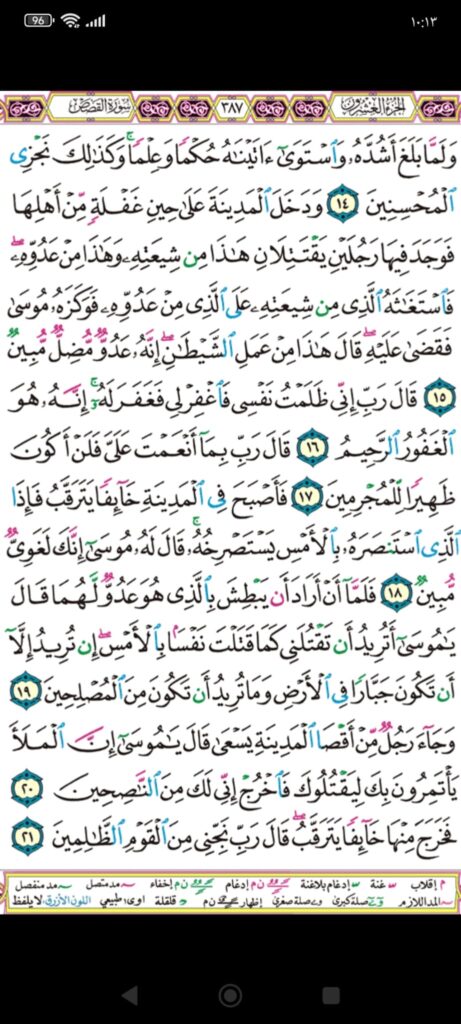 96
١٠:١٣
الجزء العشرون
٣٨٧
سورة القصص
وَلَمَّا بَلَغَ أَشُدَّهُۥ وَٱسْتَوَىٰٓ ءَاتَيْنَٰهُ حُكْمًا وَعِلْمًا ۚ وَكَذَٰلِكَ نَجْزِى
ٱلْمُحْسِنِينَ ١٤ وَدَخَلَ ٱلْمَدِينَةَ عَلَىٰ حِينِ غَفْلَةٍ مِّنْ أَهْلِهَا
فَوَجَدَ فِيهَا رَجُلَيْنِ يَقْتَتِلَانِ هَٰذَا مِن شِيعَتِهِۦ وَهَٰذَا مِنْ عَدُوِّهِۦ ۖ
فَٱسْتَغَٰثَهُ ٱلَّذِى مِن شِيعَتِهِۦ عَلَى ٱلَّذِى مِنْ عَدُوِّهِۦ فَوَكَزَهُۥ مُوسَىٰ
فَقَضَىٰ عَلَيْهِ ۖ قَالَ هَٰذَا مِنْ عَمَلِ ٱلشَّيْطَٰنِ ۖ إِنَّهُۥ عَدُوٌّ مُّضِلٌّ مُّبِينٌ
١٥ قَالَ رَبِّ إِنِّى ظَلَمْتُ نَفْسِى فَٱغْفِرْ لِى فَغَفَرَ لَهُۥٓ ۚ إِنَّهُۥ هُوَ
ٱلْغَفُورُ ٱلرَّحِيمُ ١٦ قَالَ رَبِّ بِمَآ أَنْعَمْتَ عَلَىَّ فَلَنْ أَكُونَ
ظَهِيرًا لِّلْمُجْرِمِينَ ١٧ فَأَصْبَحَ فِى ٱلْمَدِينَةِ خَآئِفًا يَتَرَقَّبُ فَإِذَا
ٱلَّذِى ٱسْتَنصَرَهُۥ بِٱلْأَمْسِ يَسْتَصْرِخُهُۥ ۚ قَالَ لَهُۥ مُوسَىٰٓ إِنَّكَ لَغَوِىٌّ
مُّبِينٌ ١٨ فَلَمَّآ أَنْ أَرَادَ أَن يَبْطِشَ بِٱلَّذِى هُوَ عَدُوٌّ لَّهُمَا قَالَ
يَٰمُوسَىٰٓ أَتُرِيدُ أَن تَقْتُلَنِى كَمَا قَتَلْتَ نَفْسًۢا بِٱلْأَمْسِ ۖ إِن تُرِيدُ إِلَّآ
أَن تَكُونَ جَبَّارًا فِى ٱلْأَرْضِ وَمَا تُرِيدُ أَن تَكُونَ مِنَ ٱلْمُصْلِحِينَ ١٩
وَجَآءَ رَجُلٌ مِّنْ أَقْصَا ٱلْمَدِينَةِ يَسْعَىٰ قَالَ يَٰمُوسَىٰٓ إِنَّ ٱلْمَلَأَ
يَأْتَمِرُونَ بِكَ لِيَقْتُلُوكَ فَٱخْرُجْ إِنِّى لَكَ مِنَ ٱلنَّٰصِحِينَ ٢٠
فَخَرَجَ مِنْهَا خَآئِفًا يَتَرَقَّبُ ۖ قَالَ رَبِّ نَجِّنِى مِنَ ٱلْقَوْمِ ٱلظَّٰلِمِينَ ٢١
م إقلاب غنة إدغام بلاغنة ن م إدغام ن م إخفاء مد متصل مد منفصل
المد اللازم صلة كبرى صلة صغرى إظهار ن م قلقلة اوى: طبيعي اللون الأزرق: لا يلفظ